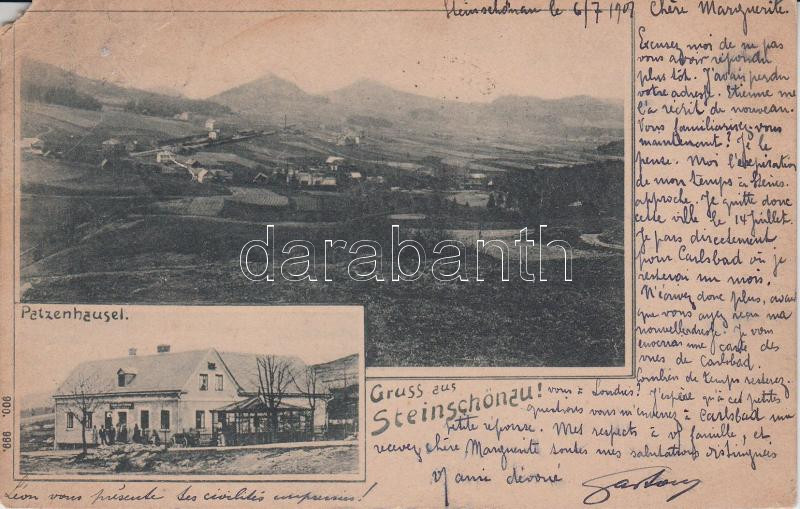 Steinschönau le 6/7 1901 Chère Marguerite.
Excusez moi de ne pas
vous avoir répondu
plus tôt. J'avais perdu
votre adresse. Etienne me
l'a écrit de nouveau.
Vous familiarisez-vous
maintenant? Je le
pense. Moi l'expiration
de mon temps à
approche. Je quitte donc
cette ville le 14 juillet.
Je pars directement
pour Carlsbad où je
resterai un mois.
N'écrivez donc plus, avant
que vous ayez reçu ma
nouvelle adresse. Je vous
enverrai une carte des
vues de Carlsbad.
Combien de temps resterez-
vous à Londres? J'espère qu'à ces petites
questions vous m'enverrez à Carlsbad une
petite réponse. Mes respects à vo famille, et
recevez chère Marguerite toutes mes salutations distinguées
V ami dévoué
Gaston
darabanth
Patzenhäusel.
Gruss aus
Steinschönau!
900, 999.
Léon vous présente ses civilités empressées!